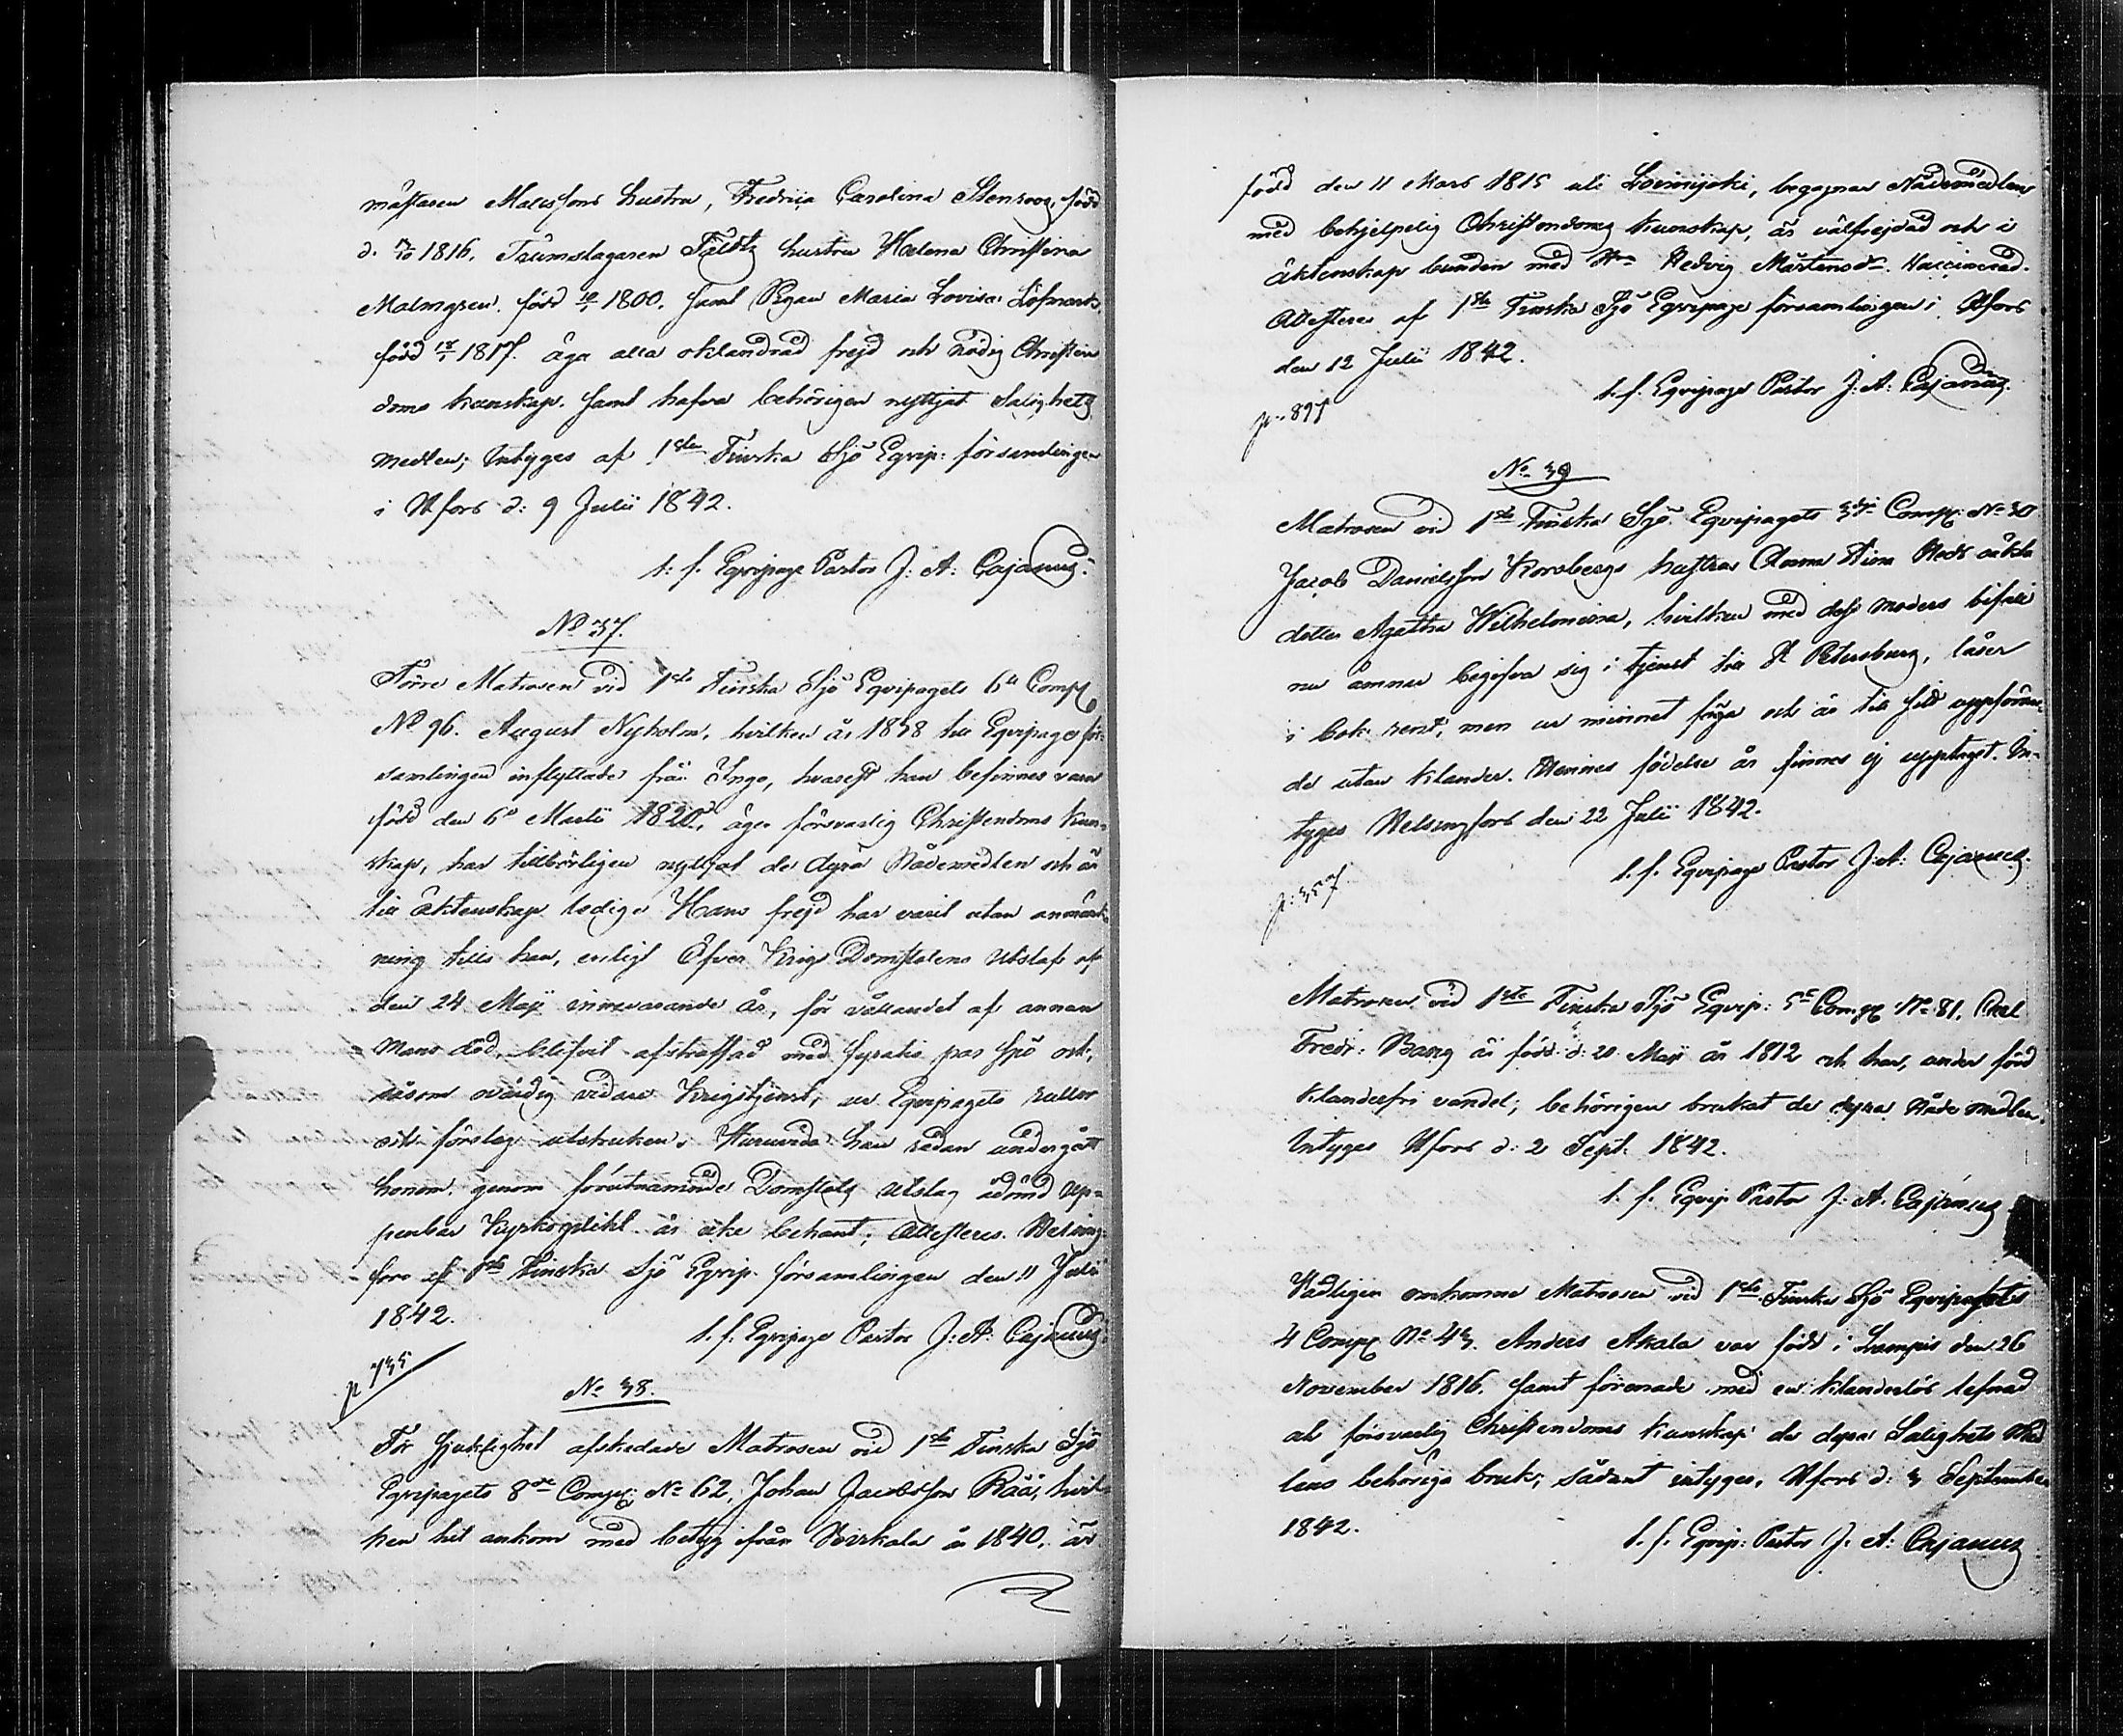 mästaren Matssons hustru, Fredrica Carolina Stenroos, född
d. 1816. Trumslagaren hustru Helena Christina
Malmgren. född 1800. samt Pigan Maria Lovisa
född 1817. äga alla oklandrad frejd och nödig Christen
doms kunskap. samt hafva behörigen nyttjat Salighets
medlen; Intyges af 1sta Finska Sjö Eqvip: församlingen
i Hfors d: 9 Julii 1842.
t. f. Eqvipage Pastor J: A: Cajanus.
No 37.
Förre Matrosen vid 1sta Finska Sjö Eqvipagets 6te Comp
No 96. August Nyholm, hvilken år 1838 till Eqvipage för-
samlingen inflyttade från Ingo, hvarest han befinnes vara
född den 6 Martii 1820, äger försvarlig Christendoms kun-
skap, har tillbörligen nyttjat de dyra Nådemedlen och är
till äktenskap ledig. Hans frejd har varit utan anmärk-
ning tills han, enligt Öfver Krigs Domstolens Utslag af
den 24 Maji innevarande år, för vållandet af annan
Mans död, blifvit afstraffad med fyratio par spö och,
såsom ovärdig vidare Krigstjenst, ur Eqvipagets rullor
förslag utstruken. Huruvida han sedan undergått
honom genom förutnämnde Domstols utslag ådömd up-
penbar Kyrkoplikt är icke bekant; Attesteras. Helsing-
fors af 1sta Finska Sjö Eqvip. församlingen den 11 Julii
1842.
t. f. Eqvipage Pastor J: A: Cajanus
p 735
No 38.
För sjuklighet afskedade Matrosen vid 1sta Finska Sjö
Eqvipagets 8de Comp: No 62, Johan Jacobsson Rää, hvil-
ken hit ankom med betyg från Virkala år 1840, är
född den 11 Mars 1815 uti Loimijoki, begagnar Nådemedlen
med behjelpelig Christendoms kunskap, är välfrejdad och i
äktenskap bunden med Hu Hedvig Mårtensdr. Vaccinerad.
Attesteras af 1sta Finska Sjö Eqvipage församlingen i Hfors
den 12 Julii 1842.
t. f. Eqvipage Pastor J: A: Cajanus.
p. 897
No 39
Matrosen vid 1sta Finska Sjö Eqvipagets 3dje Comp: No 30
Jacob Danielsson Korsbergs hustrus Anna Stina Heds oäkta
dotter Agatha Wilhelmina, hvilken med dess moders bifall
nu ämnar begifva sig i tjenst till St Petersburg, läser
i bok rent; men ur minnet föga och är till sitt uppföran-
de utan klander. Hennes födelse år finnes ej upptaget. In-
tyges Helsingfors den 22 Julii 1842.
t. f. Eqvipage Pastor J: A: Cajanus.
p: 357
Matrosen vid 1sta Finska Sjö Eqvip: 5te Comp: No 81. Carl
Fredr: Bang är född d: 20 Maji år 1812 och har, under förd
klanderfri vandel, behörigen brukat de dyra Nåde medlen.
Intyges Hfors d: 2 Sept. 1842.
t. f. Eqvip Pastor J. A. Cajanus
Vådligen omkomne Matrosen vid 1sta Finska Sjö Eqvipagets
4 Comp: No 43. Anders Akala var född i Lampis den 26
November 1816. samt förenade med en klanderlös lefnad
och försvarlig Christendoms kunskap de dyra Salighets Med
lens behöriga bruk; sådant intyges, Hfors d: 3 September
1842.
t. f. Eqvip: Pastor J. A: Cajanus